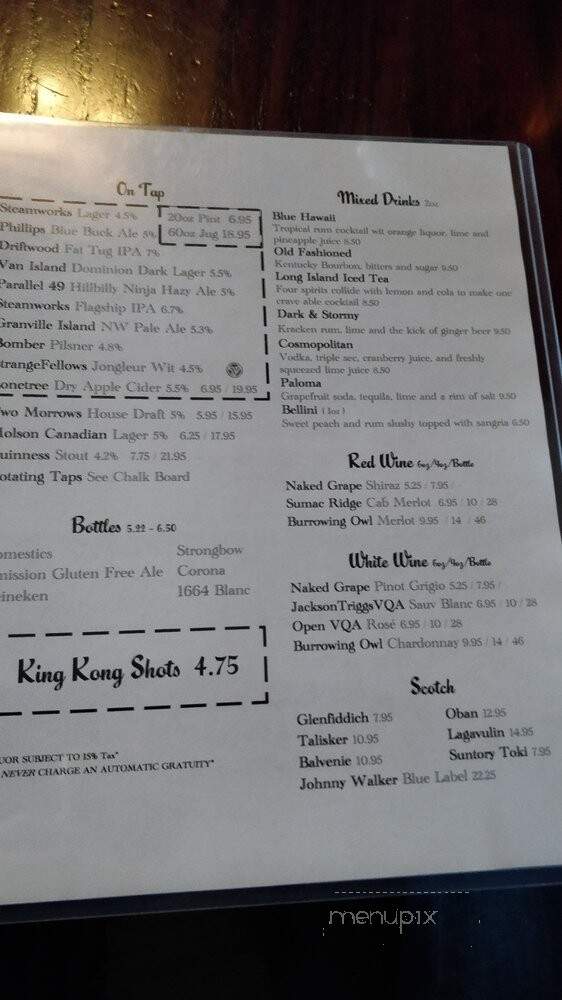 On Tap
Steamworks Lager 4.5%
Phillips Blue Buck Ale 5%
20oz Pint 6.95
60oz Jug 18.95
Driftwood Fat Tug IPA 7%
Van Island Dominion Dark Lager 5.5%
Parallel 49 Hillbilly Ninja Hazy Ale 5%
Steamworks Flagship IPA 6.7%
Granville Island NW Pale Ale 5.3%
Bomber Pilsner 4.8%
trangeFellows Jongleur Wit 4.5%
onetree Dry Apple Cider 5.5% 6.95 / 19.95
wo Morrows House Draft 5% 5.95 / 15.95
olson Canadian Lager 5% 6.25 / 17.95
uinness Stout 4.2% 7.75 / 21.95
otating Taps See Chalk Board
Bottles 5.22 - 6.50
omestics
mission Gluten Free Ale
eineken
Strongbow
Corona
1664 Blanc
King Kong Shots 4.75
UOR SUBJECT TO 15% Tax*
NEVER CHARGE AN AUTOMATIC GRATUITY*
Mixed Drinks 2oz
Blue Hawaii
Tropical rum cocktail wit orange liquor, lime and
pineapple juice 8.50
Old Fashioned
Kentucky Bourbon, bitters and sugar 9.50
Long Island Iced Tea
Four spirits collide with lemon and cola to make one
crave able cocktail 8.50
Dark & Stormy
Kracken rum, lime and the kick of ginger beer 9.50
Cosmopolitan
Vodka, triple sec, cranberry juice, and freshly
squeezed lime juice 8.50
Paloma
Grapefruit soda, tequila, lime and a rim of salt 9.50
Bellini (1oz)
Sweet peach and rum slushy topped with sangria 6.50
Red Wine 6oz/9oz/Bottle
Naked Grape Shiraz 5.25 / 7.95 /
Sumac Ridge Cab Merlot 6.95 / 10 / 28
Burrowing Owl Merlot 9.95 / 14 / 46
White Wine 6oz/9oz/Bottle
Naked Grape Pinot Grigio 5.25 / 7.95 /
JacksonTriggsVQA Sauv Blanc 6.95 / 10 / 28
Open VQA Rosé 6.95 / 10 / 28
Burrowing Owl Chardonnay 9.95 / 14 / 46
Scotch
Glenfiddich 7.95
Talisker 10.95
Balvenie 10.95
Oban 12.95
Lagavulin 14.95
Suntory Toki 7.95
Johnny Walker Blue Label 22.25
menupix